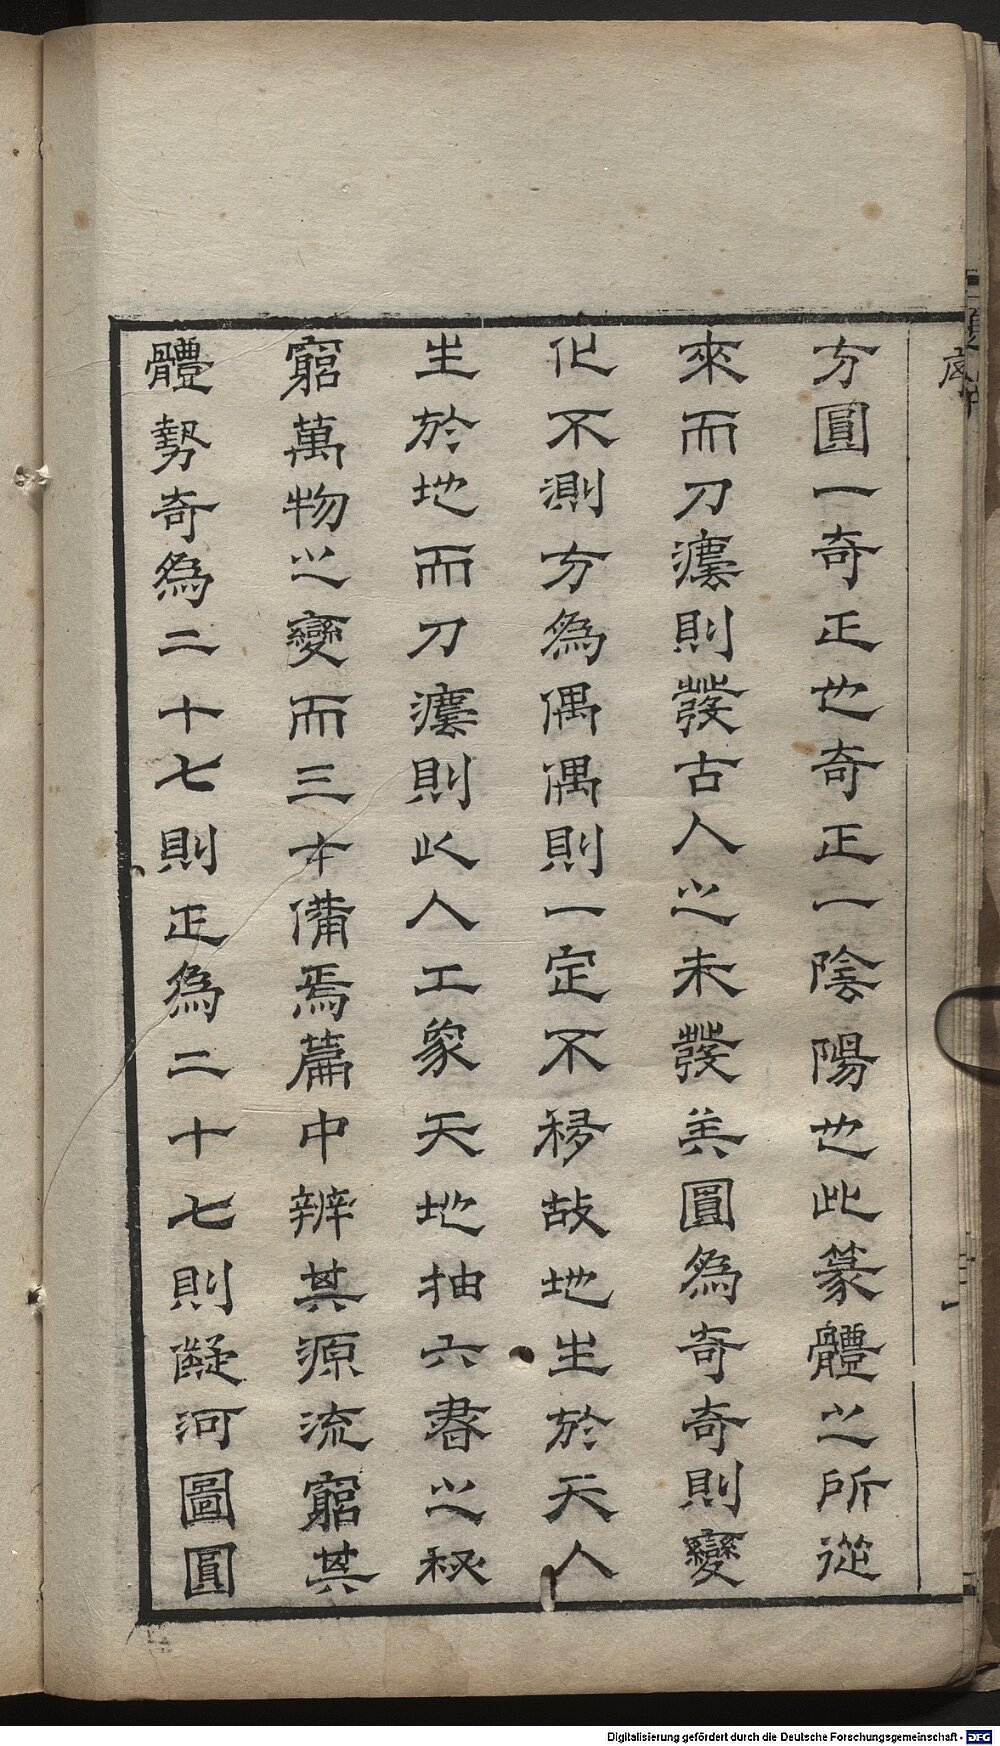 方圓一奇正也奇正一陰陽也此篆體之所從
來而刀瀘則發古人之未發美圓為奇奇則變
化不測方為偶偶則一定不移故地生於天人
生於地而刀瀘則此人工象天地抽六書之秘
窮萬物之變而三才備焉篇中辨其源流窮其
體勢奇為二十七則正為二十七則擬河圖圓
Digitalisierung gefördert durch die Deutsche Forschungsgemeinschaft - DFG